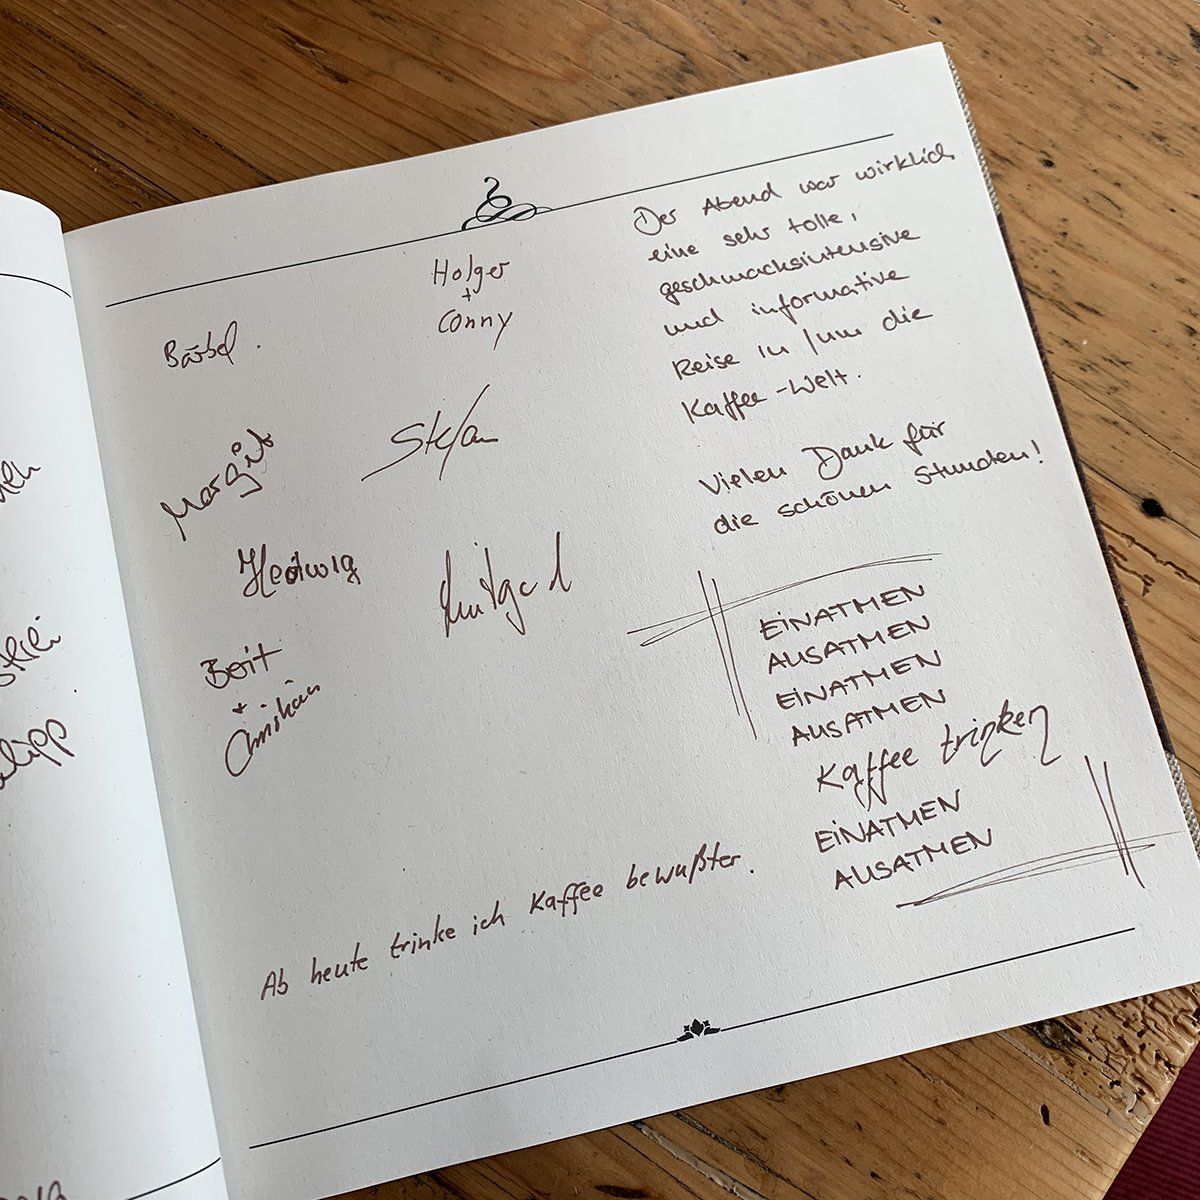 Holger
+
Conny
Bärbel.
Stefan
Margit
Hedwig
Luitgard
Berit
+
Christian
Der Abend war wirklich
eine sehr tolle,
geschmacksintensive
und informative
Reise in/um die
Kaffee-Welt.
Vielen Dank für
die schönen Stunden!
EINATMEN
AUSATMEN
EINATMEN
AUSATMEN
Kaffee trinken
EINATMEN
AUSATMEN
Ab heute trinke ich Kaffee bewußter.